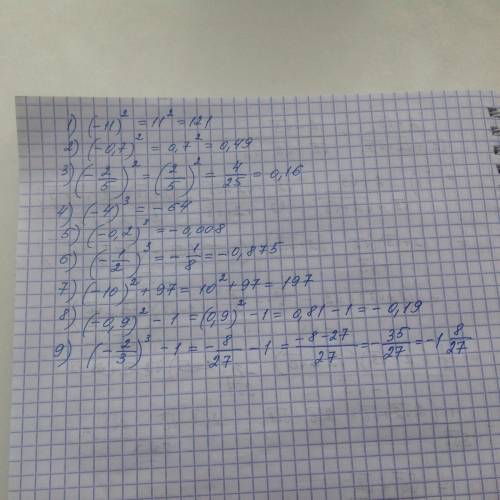 1) (-11)² = 11² = 121
2) (-0,7)² = 0,7² = 0,49
3) (-2/5)² = (2/5)² = 4/25 = 0,16
4) (-4)³ = -64
5) (-0,2)³ = -0,008
6) (-1/2)³ = -1/8 = -0,875
7) (-10)² + 97 = 10² + 97 = 197
8) (-0,9)² - 1 = (0,9)² - 1 = 0,81 - 1 = -0,19
9) (-2/3)³ - 1 = -8/27 - 1 = -8-27/27 = -35/27 = -1 8/27